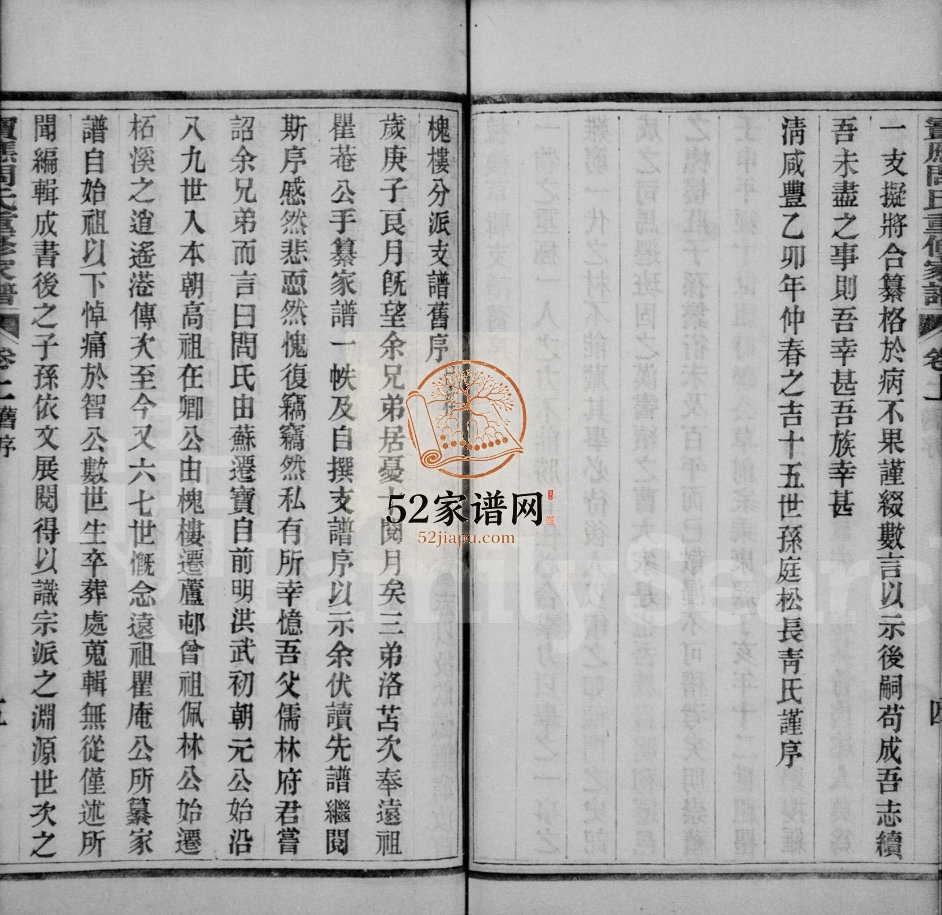 一支擬將合纂格於病不果謹綴數言以示後嗣苟成吾志續
吾未盡之事則吾幸甚吾族幸甚
清咸豐乙卯年仲春之吉十五世孫庭松長青氏謹序
槐樓分派支譜舊序
歲庚子良月旣望余兄弟居憂 閱月矣三弟洛苫次奉遠祖
瞿菴公手纂家譜一帙及自撰支譜序以示余伏讀先譜繼閱
斯序慼然悲恧然愧復竊竊然私有所幸憶吾父儒林府君嘗
詔余兄弟而言曰問氏由蘇遷寶自前明洪武初朝元公始沿
八九世入本朝高祖在卿公由槐樓遷蘆邨曾祖佩林公始遷
柘溪之逍遙港傳次至今又六七世慨念遠祖瞿庵公所纂家
譜自始祖以下悼痛於智公數世生卒葬處蒐輯無從僅述所
聞編輯成書後之子孫依文展閱得以識宗派之淵源世次之
寶應問氏重修家譜 卷上 舊序
52家谱网
52jiapu.com
familysearch